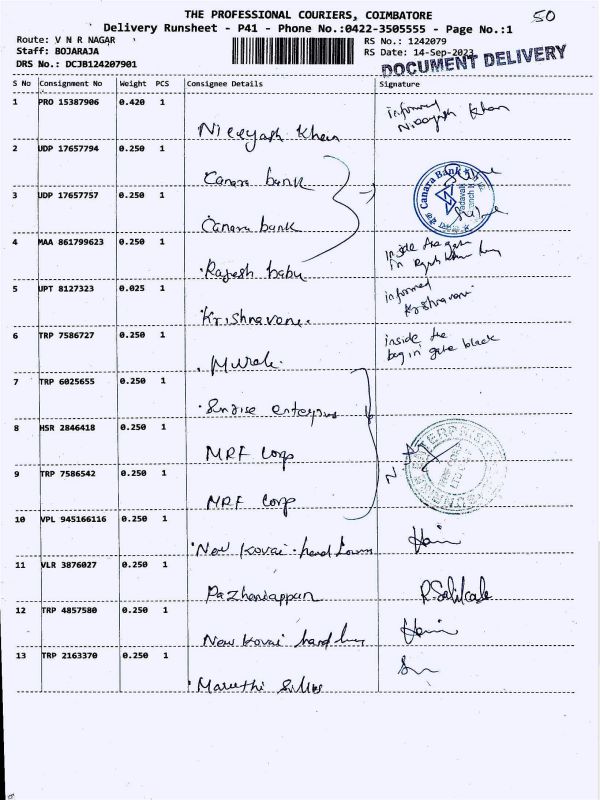 THE PROFESSIONAL COURIERS, COIMBATORE
50
Delivery Runsheet - P41 - Phone No.:0422-3505555 - Page No.:1
Route: V N R NAGAR
RS No.: 1242079
Staff: BOJARAJA
RS Date: 14-Sep-2023
DRS No.: DCJB124207901
DOCUMENT DELIVERY
S No Consignment No Weight PCS Consignee Details Signature
1 PRO 15387906 0.420 1
informed
Khan
Khan
2 UDP 17657794 0.250 1
Canara bank
Canara Bank
3 UDP 17657757 0.250 1
Canara bank
4 MAA 861799623 0.250 1
Inside
in
Rajesh babu
5 UPT 8127323 0.025 1
informed
Krishnaveni
Krishnaveni
6 TRP 7586727 0.250 1
inside the
bag in gate black
Murali
7 TRP 6025655 0.250 1
Sunrise enterprises
8 HSR 2846418 0.250 1
MRF Corp
9 TRP 7586542 0.250 1
MRF Corp
10 VPL 945166116 0.250 1
New Kovai
11 VLR 3876027 0.250 1
Pazhaniappan
12 TRP 4857580 0.250 1
New Kovai
13 TRP 2163370 0.250 1
Maruthi